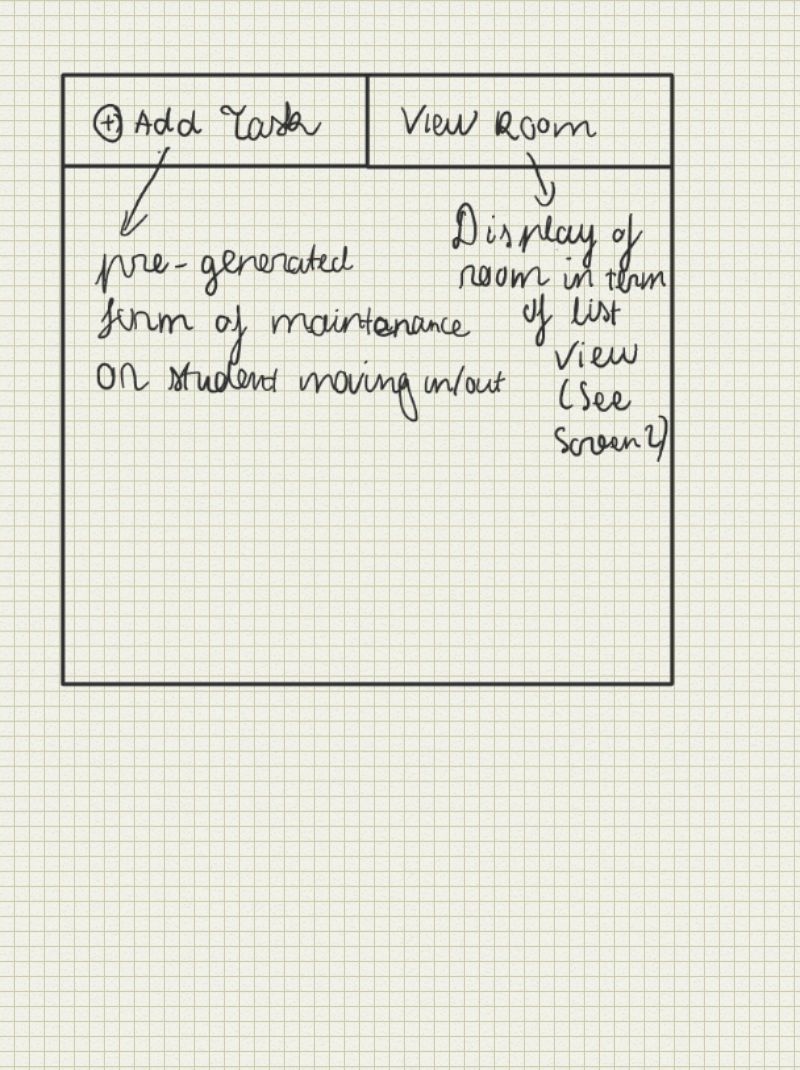 ⊕ Add Task
View Room
pre-generated
form of maintenance
on student moving in/out
Display of
room in term
of list
view
(See
Screen 2)